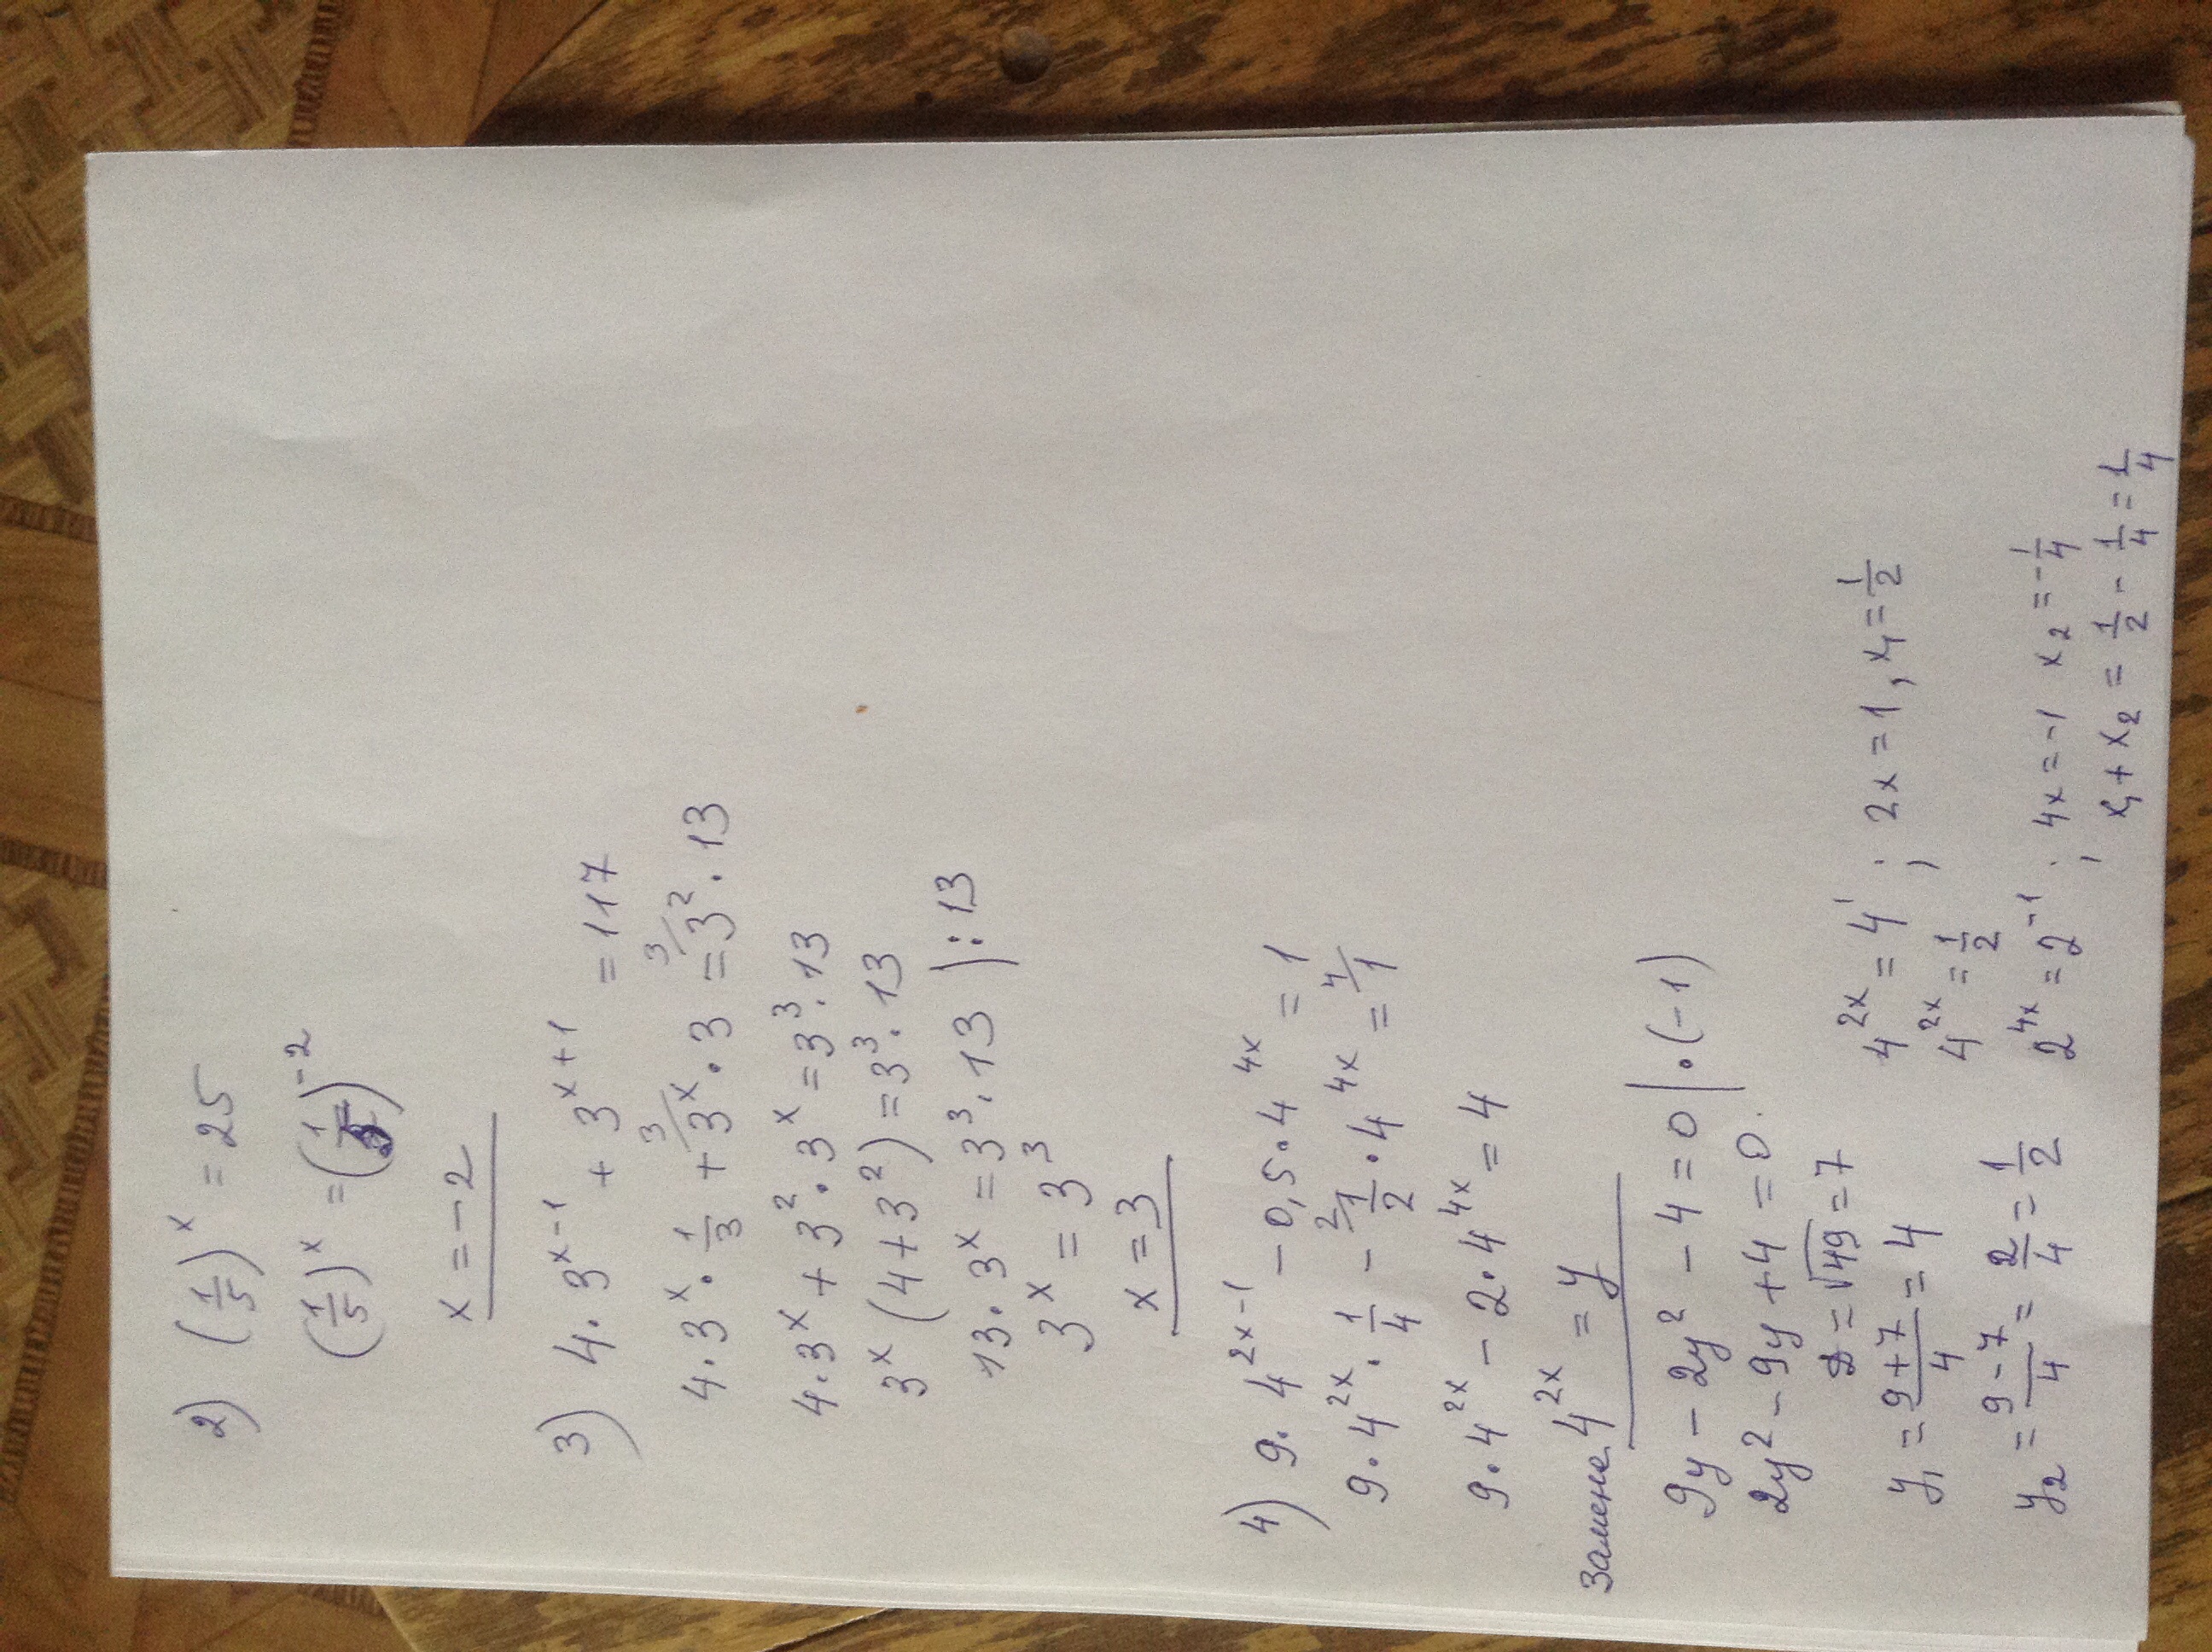 2) (1/5)^x = 25
(1/5)^x = (1/5)^-2
x = -2
3) 4·3^x-1 + 3^x+1 = 117
4·3^x·1/3 + ³/3^x·3 = ³/3²·13
4·3^x + 3²·3^x = 3³·13
3^x (4+3²) = 3³·13
13·3^x = 3³·13 | :13
3^x = 3³
x = 3
4) 9·4^2x-1 - 0,5·4^4x = 1
9·4^2x·1/4 - ²/1/2·4^4x = ⁴/1
9·4^2x - 2·4^4x = 4
Замена 4^2x = y
9y - 2y² - 4 = 0 | ·(-1)
2y² - 9y + 4 = 0.
D = √49 = 7
y₁ = 9+7/4 = 4
4^2x = 4¹ ; 2x = 1, x₁ = 1/2
4^2x = 1/2
y₂ = 9-7/4 = 2/4 = 1/2
2^4x = 2^-1 ; 4x = -1 x₂ = -1/4
; x₁ + x₂ = 1/2 - 1/4 = 1/4